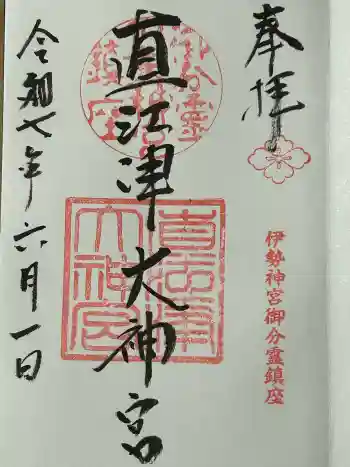 奉拝
伊勢神宮御分霊鎮座
御分霊
鎮座
直江津大神宮
直江津
大神宮
令和七年六月一日